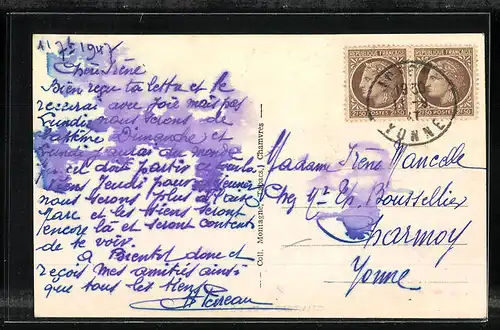 11/7/5/1947
Chère Irène
Bien reçu ta lettre et te
recevrai avec joie mais pas
Lundi nous serons de
batême Dimanche et
Lundi aurai du monde
viens Jeudi pour déjeuner
nous serons plus à l'aise
Marc et les tiens seront
encore là et seront contents
de te voir.
à Bientôt donc et
reçois mes amitiés ainsi
que tous les tiens
Coll. Montagne, Tabacs, Chamvres
REPUBLIQUE FRANÇAISE
REPUBLIQUE FRANÇAISE
2F50 POSTES 2F50
2F50 POSTES 2F50
YONNE
Madame Irène Mancelle
Chez Mr Ep. Boussellier
Charmoy
Yonne